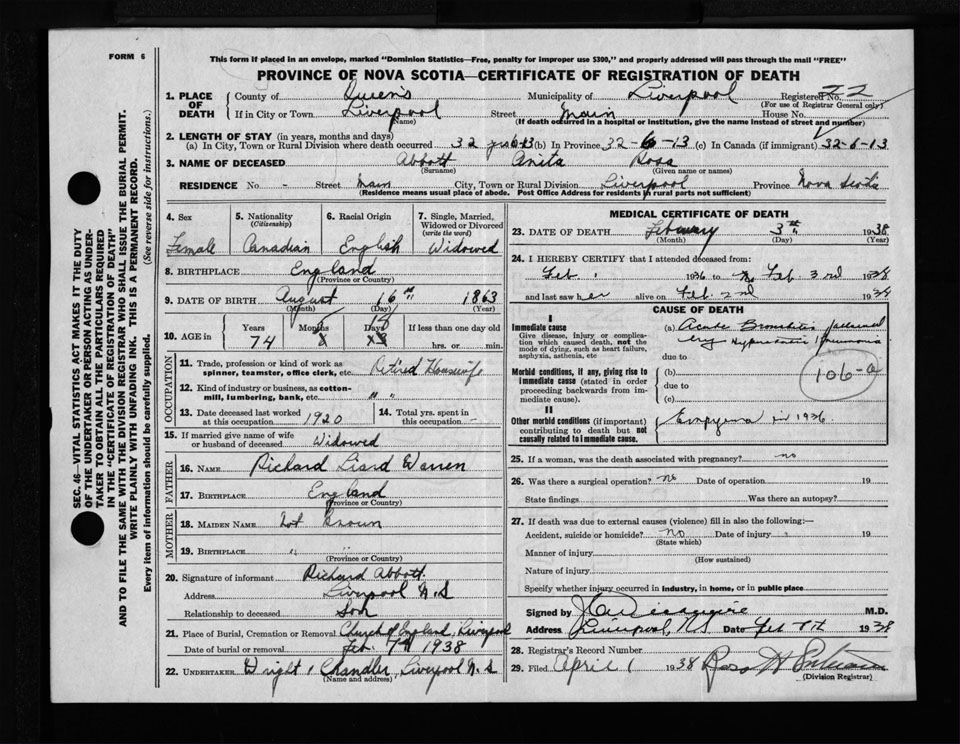 FORM 6
This form if placed in an envelope, marked "Dominion Statistics—Free, penalty for improper use $300," and properly addressed will pass through the mail "FREE"
PROVINCE OF NOVA SCOTIA—CERTIFICATE OF REGISTRATION OF DEATH
SEC. 46—VITAL STATISTICS ACT MAKES IT THE DUTY
OF THE UNDERTAKER OR PERSON ACTING AS UNDER-
TAKER TO OBTAIN ALL THE PARTICULARS REQUIRED
IN THE "CERTIFICATE OF REGISTRATION OF DEATH"
AND TO FILE THE SAME WITH THE DIVISION REGISTRAR WHO SHALL ISSUE THE BURIAL PERMIT.
WRITE PLAINLY WITH UNFADING INK. THIS IS A PERMANENT RECORD.
Every item of information should be carefully supplied. (See reverse side for instructions.)
1. PLACE OF DEATH County of Queen's Municipality of Liverpool Registered No. 22
(For use of Registrar General only)
If in City or Town Liverpool Street Main House No.
(Name) (If death occurred in a hospital or institution, give the name instead of street and number)
2. LENGTH OF STAY (in years, months and days)
(a) In City, Town or Rural Division where death occurred 32 yrs 6-13 (b) In Province 32-6-13 (c) In Canada (if immigrant) 32-6-13
3. NAME OF DECEASED Abbott Anita Rosa
(Surname) (Given name or names)
RESIDENCE No. - Street Main City, Town or Rural Division Liverpool Province Nova Scotia
(Residence means usual place of abode. Post Office Address for residents in rural parts not sufficient)
4. Sex 5. Nationality 6. Racial Origin 7. Single, Married, Widowed or Divorced
(Citizenship) (write the word)
Female Canadian English Widowed
8. BIRTHPLACE England
(Province or Country)
9. DATE OF BIRTH August 16th 1863
(Month) (Day) (Year)
10. AGE in Years Months Days If less than one day old
74 5 18 hrs. or min.
OCCUPATION
11. Trade, profession or kind of work as spinner, teamster, office clerk, etc. Retired Housewife
12. Kind of industry or business, as cotton-mill, lumbering, bank, etc. " "
13. Date deceased last worked at this occupation 1920 14. Total yrs. spent in this occupation -
15. If married give name of wife or husband of deceased Widowed
FATHER
16. NAME Richard Liard Warren
17. BIRTHPLACE England
(Province or Country)
MOTHER
18. MAIDEN NAME Not Known
19. BIRTHPLACE " "
(Province or Country)
20. Signature of informant Richard Abbott
Address Liverpool N.S
Relationship to deceased Son
21. Place of Burial, Cremation or Removal Church of England, Liverpool
Date of burial or removal Feb. 7th 1938
22. UNDERTAKER Wright, Chandler, Liverpool N.S
(Name and address)
MEDICAL CERTIFICATE OF DEATH
23. DATE OF DEATH February 3rd 1938
(Month) (Day) (Year)
24. I HEREBY CERTIFY that I attended deceased from:
Feb. 1 1936 to Feb. 3rd 1938
and last saw her alive on Feb. 2nd 1938
CAUSE OF DEATH
I
Immediate cause
Give disease, injury or complication which caused death, not the mode of dying, such as heart failure, asphyxia, asthenia, etc
(a) Acute Bronchitis followed
by Hypostatic Pneumonia
due to
Morbid conditions, if any, giving rise to immediate cause (stated in order proceeding backwards from immediate cause).
(b)
due to
(c)
106-a
II
Other morbid conditions (if important) contributing to death but not causally related to immediate cause.
Empyema in 1936
25. If a woman, was the death associated with pregnancy? no
26. Was there a surgical operation? no Date of operation 19
State findings Was there an autopsy?
27. If death was due to external causes (violence) fill in also the following:—
Accident, suicide or homicide? no Date of injury 19
(State which)
Manner of injury
(How sustained)
Nature of injury
Specify whether injury occurred in industry, in home, or in public place
Signed by M.D.
Address Liverpool, N.S Date Feb 1938
28. Registrar's Record Number
29. Filed April 1 1938
(Division Registrar)